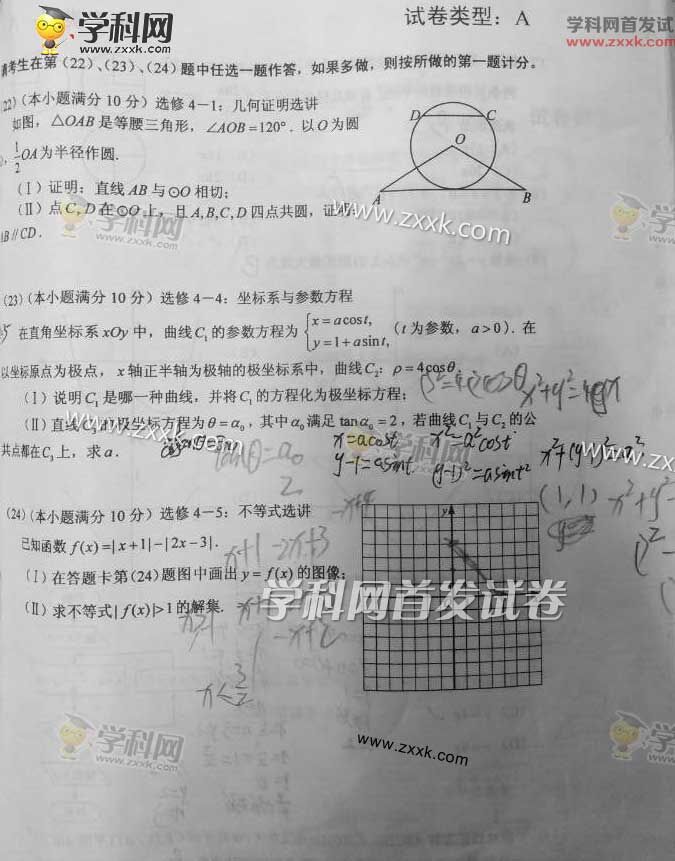 学科网
www.zxxk.com
试卷类型：A
学科网首发试
www.zxxk.com
考生在第（22）、（23）、（24）题中任选一题作答，如果多做，则按所做的第一题计分。
22）（本小题满分 10 分）选修 4—1：几何证明选讲
如图，△OAB 是等腰三角形，∠AOB=120°．以 O 为圆
，1/2 OA 为半径作圆．
（Ⅰ）证明：直线 AB 与⊙O 相切；
（Ⅱ）点 C，D 在⊙O 上，且 A,B,C,D 四点共圆，证明：
AB∥CD．
D C
O
A B
学科网
www.zxxk.com
www.zxxk.com
（23）（本小题满分 10 分）选修 4—4：坐标系与参数方程
在直角坐标系 xOy 中，曲线 C₁ 的参数方程为 { x=a cos t, y=1+a sin t, （t 为参数，a>0）．在
以坐标原点为极点，x 轴正半轴为极轴的极坐标系中，曲线 C₂：ρ=4cosθ．
（Ⅰ）说明 C₁ 是哪一种曲线，并将 C₁ 的方程化为极坐标方程；
（Ⅱ）直线 C₃ 的极坐标方程为 θ=α₀，其中 α₀ 满足 tanα₀=2，若曲线 C₁ 与 C₂ 的公
共点都在 C₃ 上，求 a．
x²+y²=4x
x=acost x²=a²cost
y-1=asint (y-1)²=asint²
x²+(y-1)²=a²
tanθ=a₀
2
(1,1) x²+y²-
www.zxxk.com
www.zxxk.com
（24）（本小题满分 10 分）选修 4—5：不等式选讲
已知函数 f(x)=|x+1|−|2x−3|．
（Ⅰ）在答题卡第（24）题图中画出 y=f(x) 的图像；
（Ⅱ）求不等式 |f(x)|>1 的解集．
-x+4
x+1-2x+3
y
学科网首发试卷
x<3/2
学科网
www.zxxk.com
www.zxxk.com